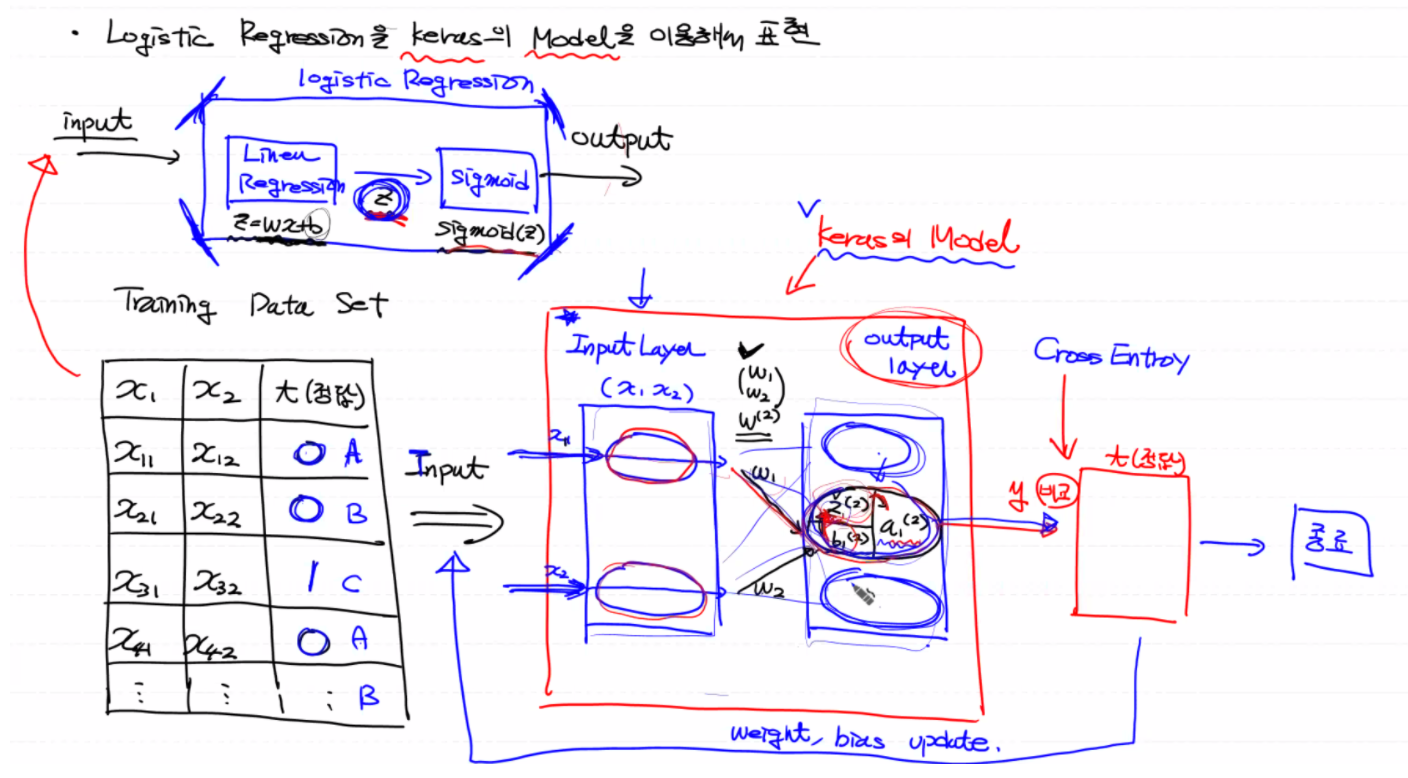 · Logistic Regression을 keras의 Model을 이용해서 표현
logistic Regression
input
output
Linear
Regression
z
sigmoid
z=wx+b
sigmoid(z)
keras의 Model
Training Data Set
x₁ x₂ t(정답)
x₁₁ x₁₂ 0 A
x₂₁ x₂₂ 0 B
x₃₁ x₃₂ 1 C
x₄₁ x₄₂ 0 A
⋮ ⋮ ⋮ B
Input
Input Layer
(x₁ x₂)
x₁₁
x₂
(w₁
w₂)
W⁽²⁾
w₁
w₂
output
layer
z₁⁽²⁾
b₁⁽²⁾
a₁⁽²⁾
Cross Entroy
y 비교
t(정답)
종료
weight, bias update.